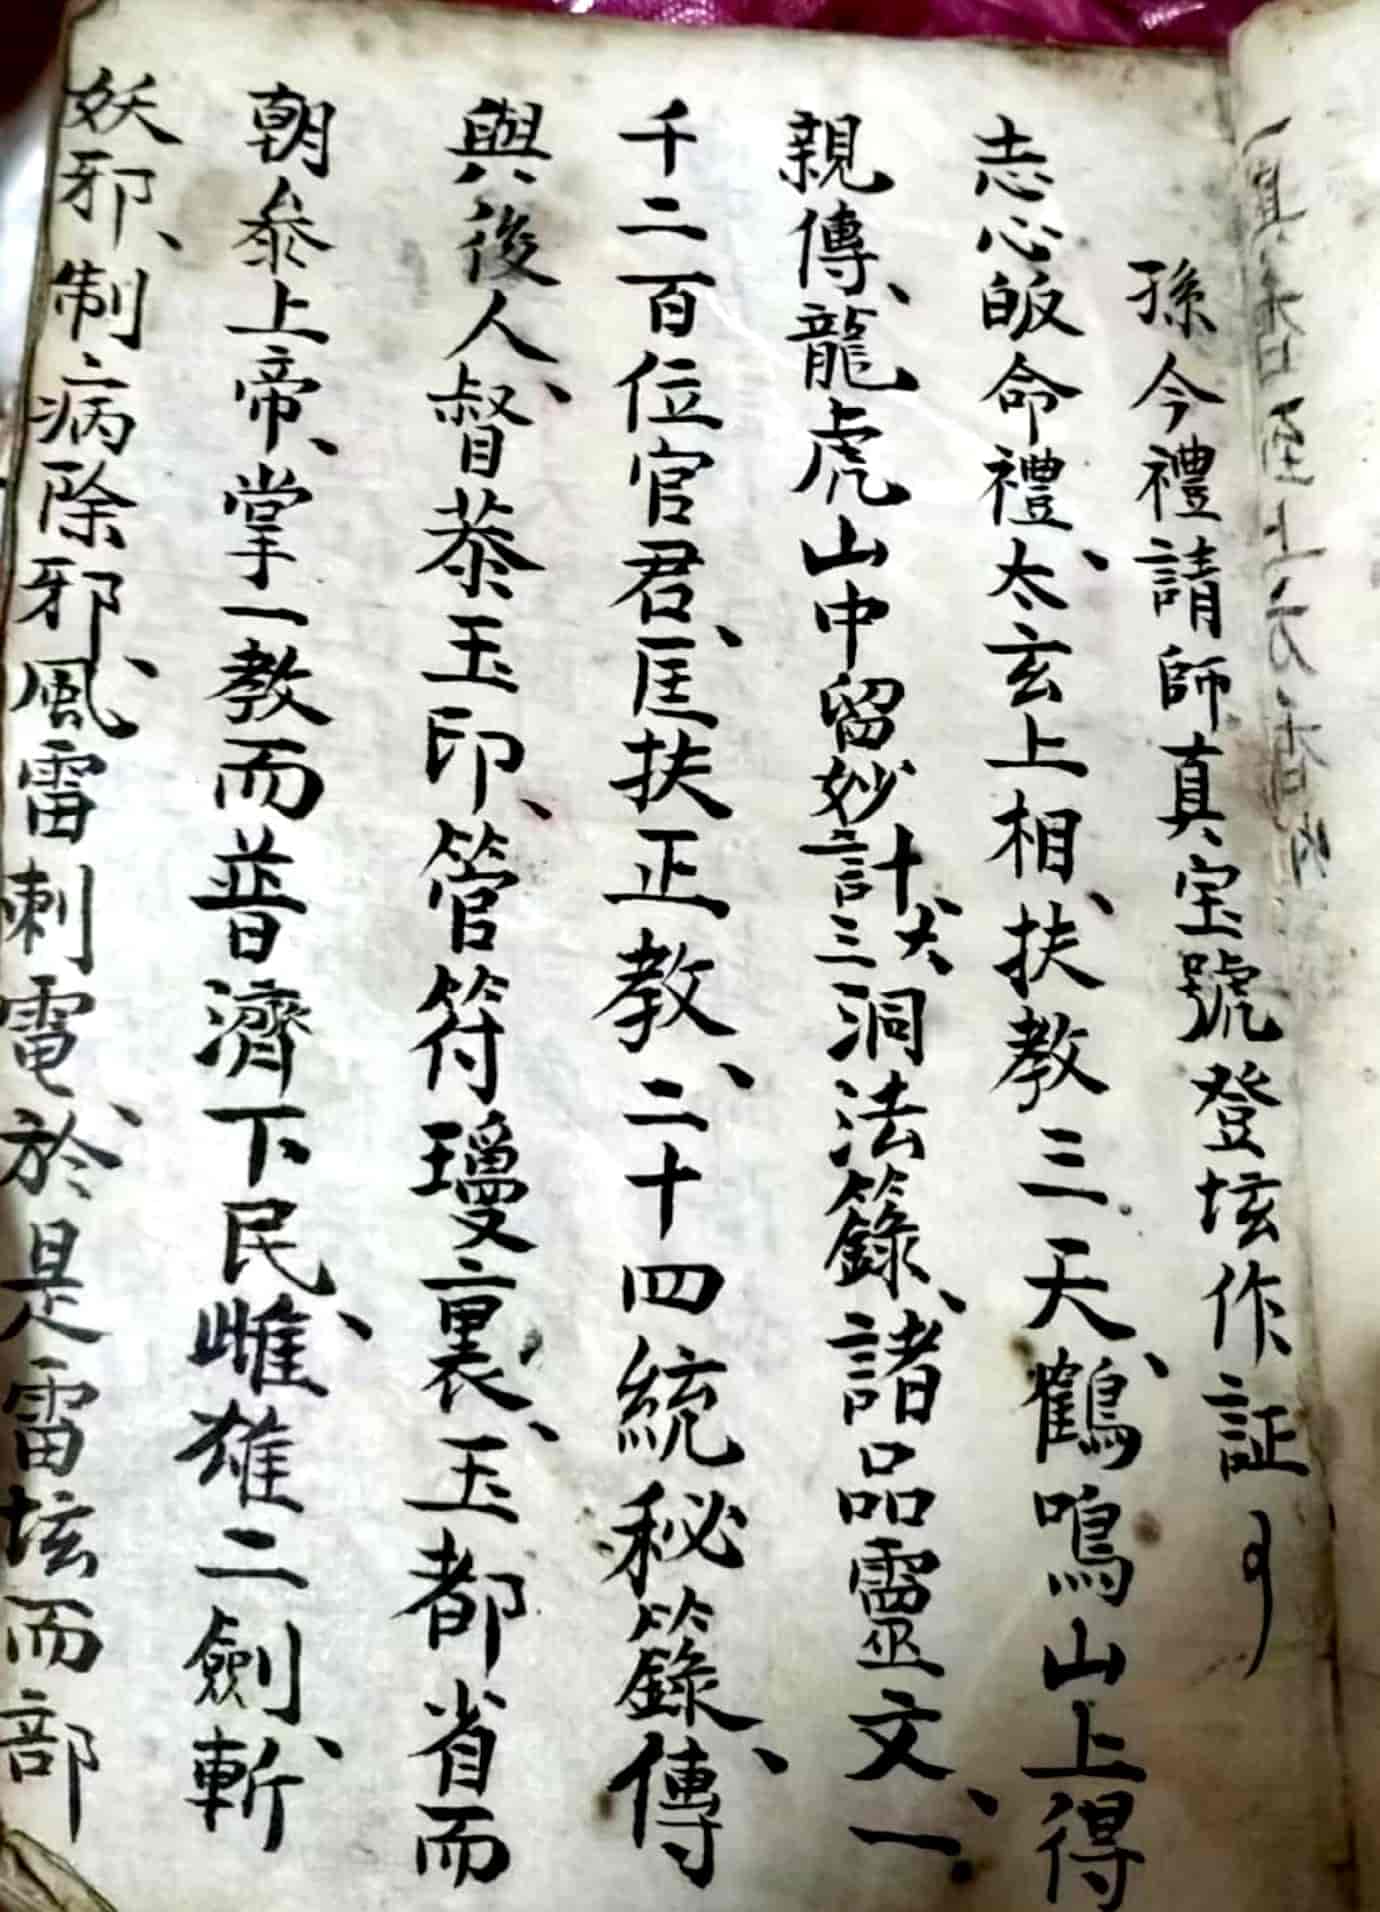 孫今禮請師真宝號登坛作証
志心皈命禮、太玄上相、扶教三天、鶴鳴山上得
親傳、龍虎山中留妙計三洞法籙、諸品靈文、一
十六
千二百位官君、匡扶正教、二十四統秘籙、傳
與後人、督㤗玉印、管符璎裏、玉都省而
朝㤗上帝、掌一教而普濟下民、雌雄二劍、斬
妖邪、制病除邪、風雷刺電、於是雷坛而部